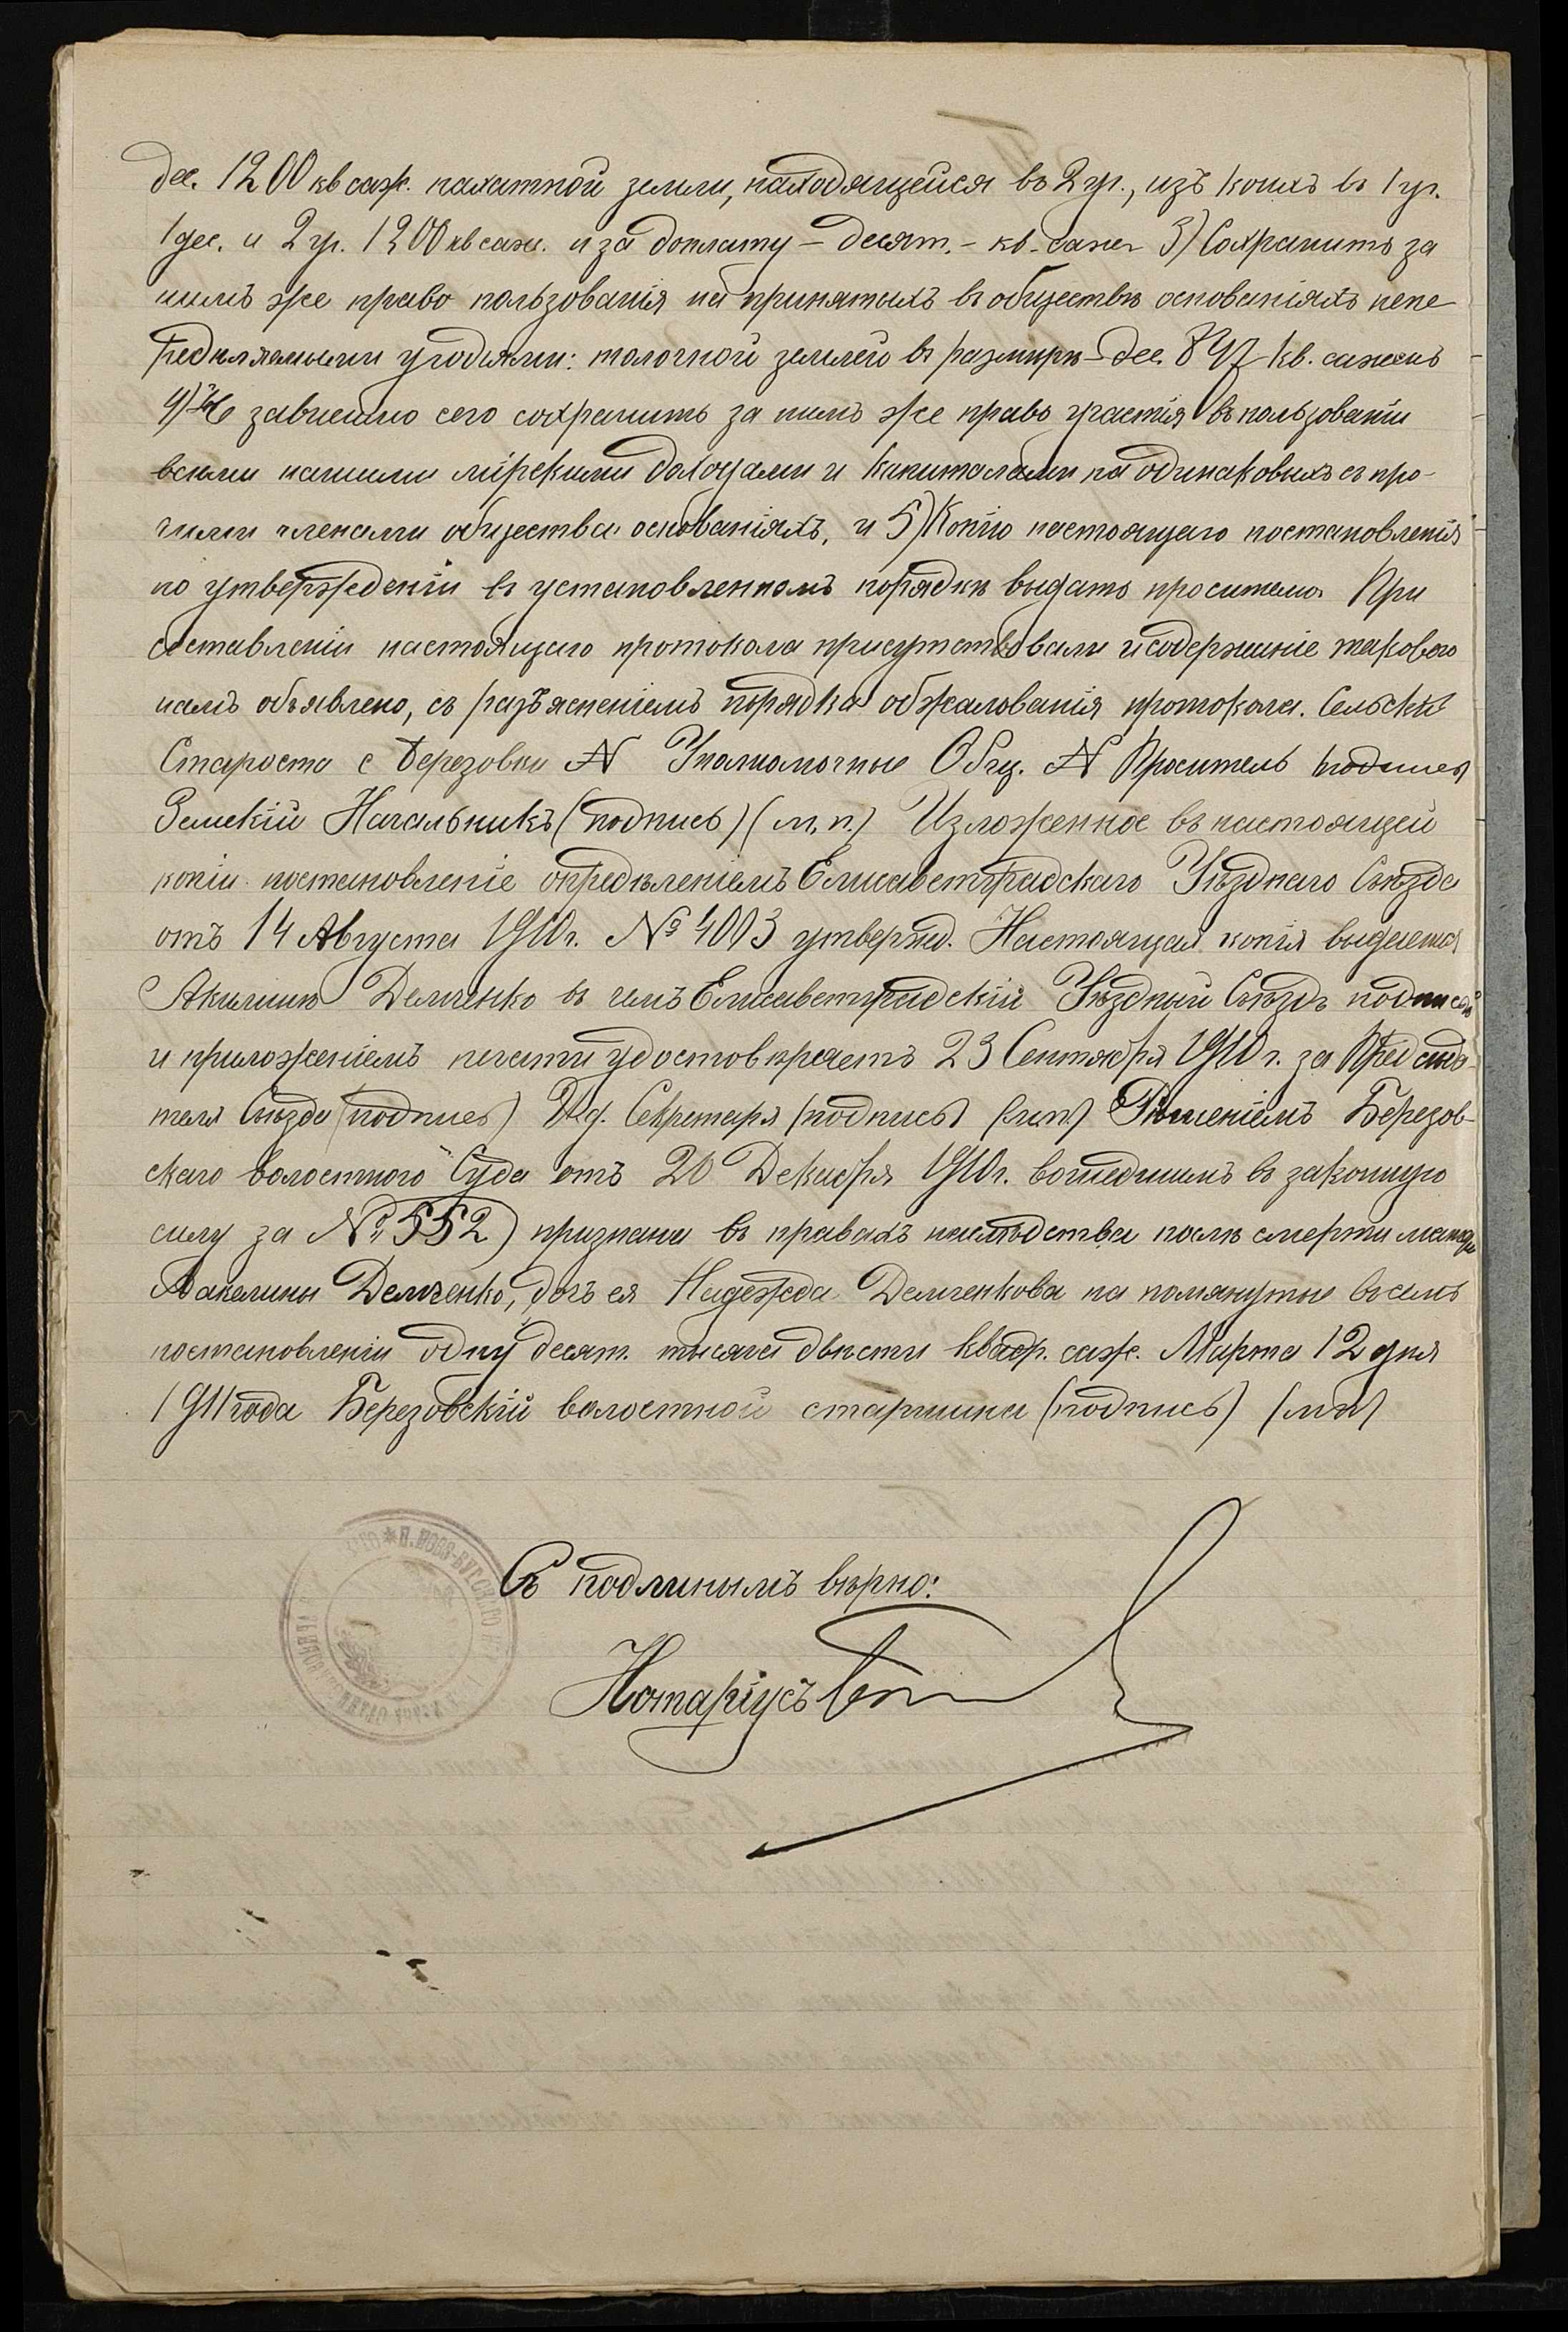 дес. 1200 кв саж. пахатной земли, находящейся въ 2 уч., изъ коихъ въ 1 уч.
1 дес. и 2 уч. 1200 кв саж. и за доплату – десят. – кв. сажен 3) Сохранить за
нимъ же право пользованія на принятыхъ въ обществѣ основаніяхъ непе-
редѣляемыми угодіями: толочной землею въ размѣрѣ – дес. 847 кв. сажень
4) Не зависимо сего сохранить за нимъ же право участія въ пользованіи
всѣми нашими мірскими доходами и капиталами на одинаковыхъ съ про-
чими членами общества основаніяхъ, и 5) Копію настоящаго постановленія
по утвержденіи въ установленномъ порядкѣ выдать просителю. При
составленіи настоящаго протокола присутствовали и содержаніе такового
намъ объявлено, съ разъясненіемъ порядка обжалованія протокола. Сельскій
Староста с Березовки N Уполномочные Общ. N Проситель (подпись)
Земскій Начальникъ (подпись) (м. п.) Изложенное въ настоящей
копіи постановленіе опредѣленіемъ Елисаветградскаго Уѣзднаго Съѣзда
отъ 14 Августа 1910 г. № 4003 утвержд. Настоящая копія выдается
Акилинѣ Демченко въ чемъ Елисаветградскій Уѣздный Съѣздъ подписью
и приложеніемъ печати удостовѣряетъ 23 Сентября 1910 г. за Предсѣда-
теля Съѣзда (подпись) И. д. Секретаря (подпись) (м.п.) Рѣшеніемъ Березов-
скаго Волостного Суда отъ 20 Декабря 1910 г. вошедшимъ въ законную
силу за № 552) признана въ правахъ наслѣдства послѣ смерти матери
Демченко, дочь ея Надежда Демченкова на помянутые въ семъ
постановленіи одну десят. тысяча двѣсти квадр. саж. Марта 12 дня
1911 года Березовскій волостной старшина (подпись) (м п)
Съ подлинымъ вѣрно:
Нотаріусъ